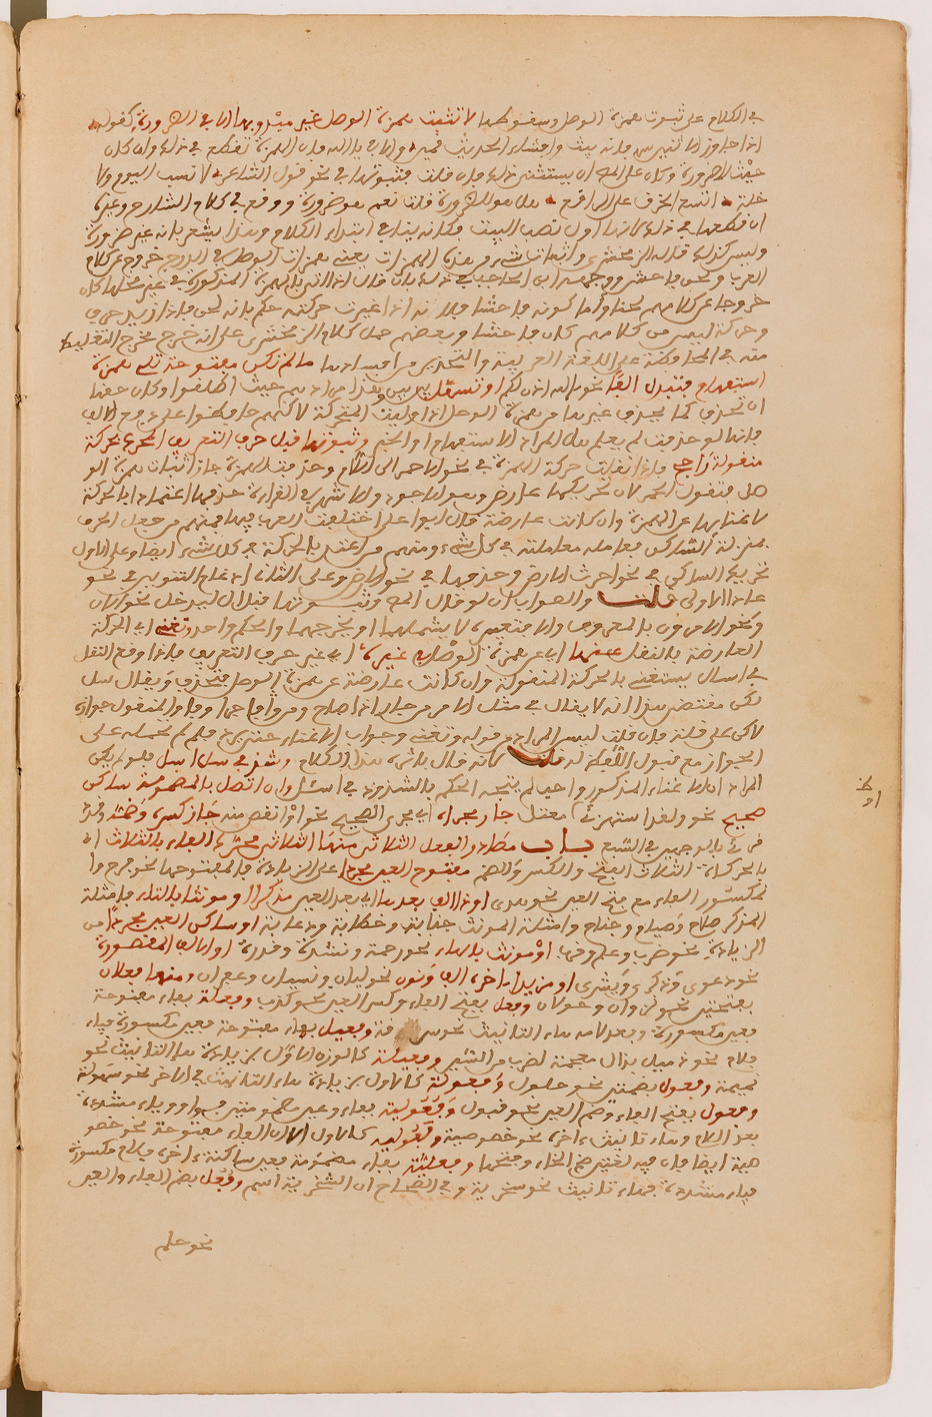 في الكلام على ثبوت همزة الوصل وسقوطها لا تثبت همزة الوصل غير مبدوء بها الا في الضرورة كقوله
اذا جاوز الاثنين سر فانه ببث وافشاء الحديث قمين والا في يا الله فان الهمزة تقطع في ذلك وان كان
حيث لا ضرورة وكان على المص ان يستثنى ذلك فان قلت فثبوتها في نحو قول الشاعر لا نسب اليوم ولا
خلة اتسع الخرق على الراقع هل هو للضرورة قلت نعم هو ضرورة ووقع في كلام الشارح وغيره
ان قطعها في ذلك لانها اول نصف البيت فكانه بناء في ابتداء الكلام وهذا يشعر بانه غير ضرورة
وليس كذلك قال الزمخشري واثبات شيء من هذه الهمزات يعني همزات الوصل في الدرج خروج عن كلام
العرب ولحن فاحش ووجه ابن الحاجب في ذلك بان قال اذا اتي بالهمزة المذكورة في غير محلها كان
خروجا عن كلامهم لحنا واما كونه فاحشا فلانه اذا غيرت حركته حكم بانه لحن فاذا زيد حرف
وحركة ليس من كلامهم كان فاحشا وبعضهم حمل كلام الزمخشري على انه خرج مخرج التغليظ
منه في المحافظة على اللغة العربية والتحذير من افسادها ما لم تكن مفتوحة تلي همزة
استفهام فتبدل الفا نحو ءالله اذن لكم او تسهل بين بين وهذا مرادهم حيث اطلقوا وكان حقها
ان تحذف كما يحذف غيرها من همزة الوصل اذا وليت المتحركة لاكنهم حافظوا على
فانها لو حذفت لم يعلم هل المراد الاستفهام او الخبر وثبوتها قبل حرف التعريف المحرك بحركة
منقولة راجح فاذا نقلت حركة الهمزة في نحو الاحمر الى اللام وحذفت الهمزة جاز اثبات همزة الو
صل فتقول الحمر لان تحريكها عارض وهو الاجود والاشهر في القراءة حذفها اعتمادا بالحركة
لاغنائها عن الهمزة وان كانت عارضة قال ابو على اختلفت العرب فيها فمنهم من جعل الحرف
بمنزلة الساكن فعامله معاملته في كل شيء ومنهم من اعتد بالحركة في كل شيء ايضا وعلى الاول
تحريك الساكن في نحو احرث الارض وحذفها في نحو الارض وعلى الثاني ادغام التنوين في نحو
عادا الاولى قلت والصواب ان لو قال المص وثبوتها قبل ال ليدخل نحو الان
ونحو الامرون بالمعروف والا فتعبيره لا يشملهما او يخرجهما والحكم واحد وتغني اي الحركة
العارضة بالنقل عنها اي عن همزة الوصل في غيره اي غير حرف التعريف فاذا وقع النقل
في اسال يستغنى بالحركة المنقولة وان كانت عارضة عن همزة الوصل فتحذف ويقال سل
لكن مقتضى هذا انه لا يقال في مثل الامر من جار اذا صاح ومن واجر والمنقول جوازه
لاكن على قلة فان قلت ليس المراد من قوله وتغني وجوب الاغناء حتى يرد فلم لم تحمله على
الجواز مع قبول اللفظ له قلت لانه قال بانر هذا الكلام وشذ في سل اسل فلو لم يكن
المراد ان الاغناء المذكور واجب لم يتجه الحكم بالشذوذ في اسئل وان اتصل بالمضمومة ساكن
صحيح نحو ولقد استهزئ او معتل جار مجراه اي مجرى الصحيح نحو او انقص منه جاز كسره وضمه وقد
قرئ بالوجهين في السبع باب مصادر الفعل الثلاثي منها الثلاثي محرك الفاء بالثلاث اي
بالحركات الثلاث الفتح والكسر والضم مفتوح العين مجردا على الزيادة فالمفتوحها نحو فرح وا
لمكسور الفاء مع فتح العين نحو هدى او ذا الف بعدها اي بعد العين مذكرا او مونثا بالتاء فامثلة
المذكر صلاح وصيام وجناح وامثلة المونث جنابة وخطابة ودعابة او ساكن العين مجردا من
الزيادة نحو ضرب وعلم وقرب او مونث بالهاء نحو رحمة ونشدة وقدرة او الالف المقصورة
نحو دعوى وذكرى وبشرى او مزيدا ءاخره الف ونون نحو ليان ونسيان وغفران ومنها فعلان
بفتحتين نحو نزوان وجولان وفعل بفتح الفاء وكسر العين نحو كذب وفعلة بفاء مفتوحة
بعين مكسورة وبعد لامه هاء التانيث نحو سرقة وفعيل بفاء مفتوحة بعين مكسورة فياء
فلام نحو ذميل بذال معجمة لضرب من السير وفعيلة كالوزن الاول بزيادة هاء التانيث نحو
نميمة وفعول بضمتين نحو جلوس وفعولة كالاول بزيادة هاء التانيث في الاخر نحو سهولة
وفعول بفتح الفاء وضم العين نحو قبول وفعولية بفاء وعين مضمومتين فواو وياء مشددة
بعد اللام وهاء تانيث ءاخره نحو خصوصية وفعولية كالاول الا ان الفاء مفتوحة نحو خصو
صية ايضا فان فيه لغتين ضم الخاء وفتحها وفعلنية بفاء مضمومة بعين ساكنة ءاخره فلام مكسورة
فياء مشددة فهاء تانيث نحو سخرية وفي الصحاح ان السخرية اسم وفعل بضم الفاء والعين
نحو حلم